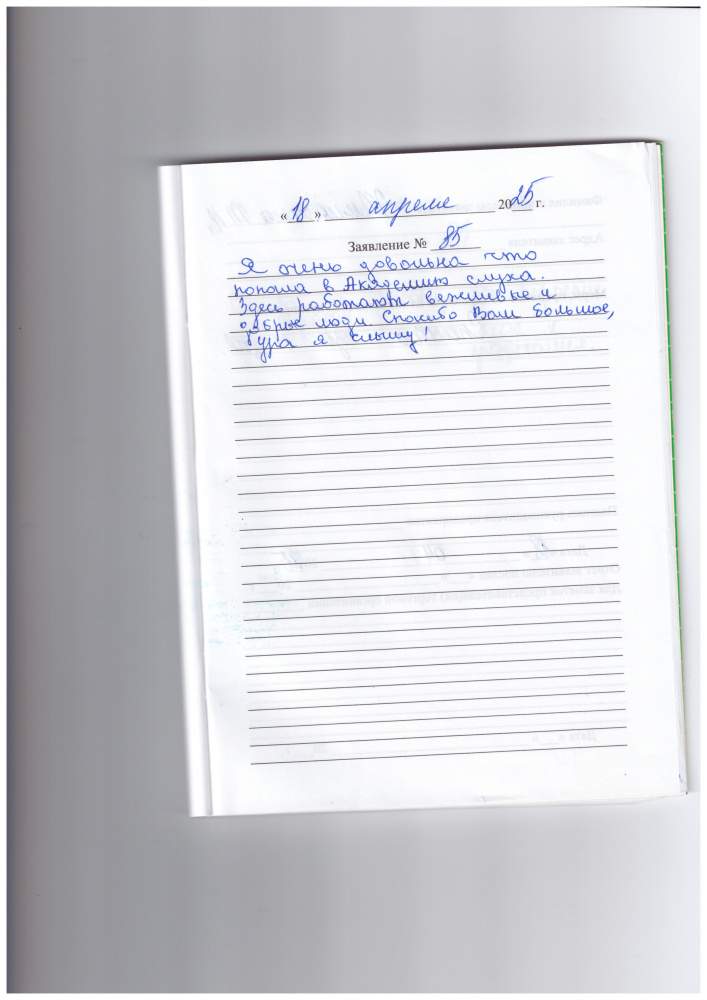 «18» апреля 2025 г.
Заявление № 85
Я очень довольна что
попола в Академию слуха.
Здесь работают вежливые и
добрые люди. Спасибо Вам большое,
Ура я слышу!